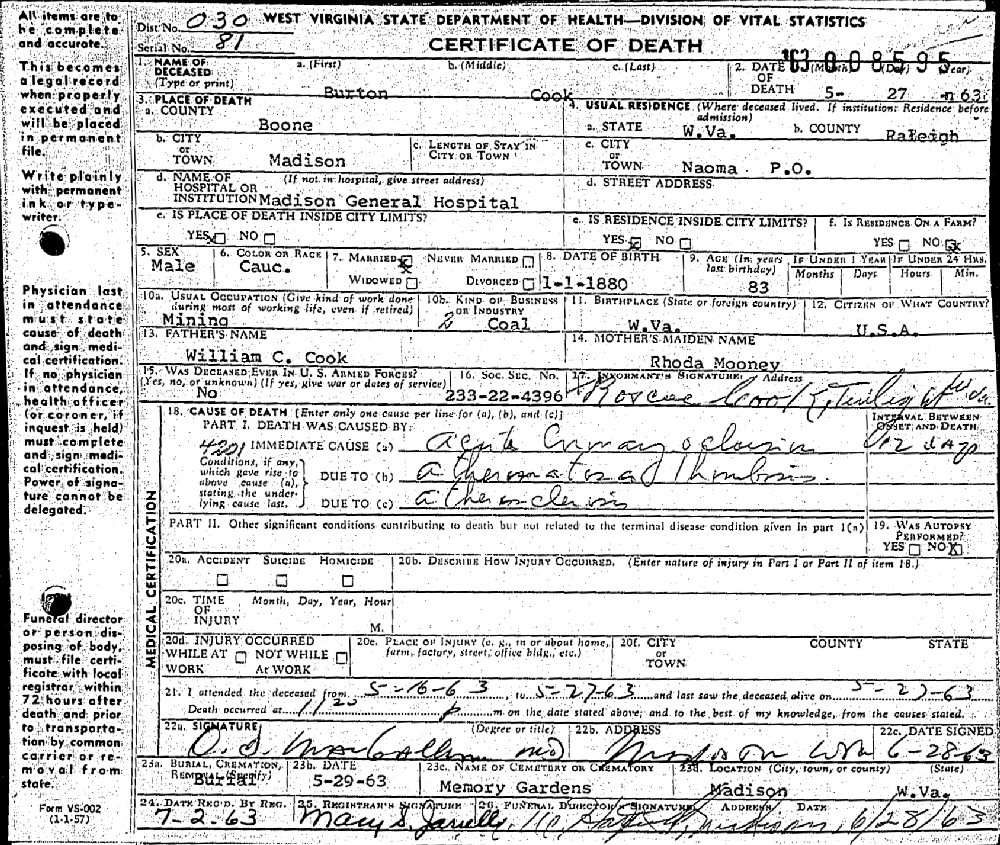 All items are to be complete and accurate.
This becomes a legal record when properly executed and will be placed in permanent file.
Write plainly with permanent ink or typewriter.
Physician last in attendance must state cause of death and sign medical certification. If no physician in attendance, health officer (or coroner, if inquest is held) must complete and sign medical certification. Power of signature cannot be delegated.
Funeral director or person disposing of body, must file certificate with local registrar within 72 hours after death and prior to transportation by common carrier or removal from state.
Form VS-002
(1-1-57)
Dist No. 030 WEST VIRGINIA STATE DEPARTMENT OF HEALTH—DIVISION OF VITAL STATISTICS
Serial No. 81 CERTIFICATE OF DEATH
1. NAME OF DECEASED (Type or print) a. (First) b. (Middle) c. (Last) 2. DATE OF DEATH (Month) (Day) (Year)
'63 008595
Burton Cook 5- 27 63
3. PLACE OF DEATH 4. USUAL RESIDENCE (Where deceased lived. If institution: Residence before admission)
a. COUNTY Boone a. STATE W.Va. b. COUNTY Raleigh
b. CITY or TOWN Madison c. LENGTH OF STAY IN CITY OR TOWN c. CITY or TOWN Naoma P.O.
d. NAME OF HOSPITAL OR INSTITUTION (If not in hospital, give street address) Madison General Hospital d. STREET ADDRESS
e. IS PLACE OF DEATH INSIDE CITY LIMITS? e. IS RESIDENCE INSIDE CITY LIMITS? f. IS RESIDENCE ON A FARM?
YES X NO YES X NO YES NO X
5. SEX 6. COLOR OR RACE 7. MARRIED X NEVER MARRIED 8. DATE OF BIRTH 9. AGE (In years last birthday) IF UNDER 1 YEAR IF UNDER 24 HRS.
Months Days Hours Min.
Male Cauc. WIDOWED DIVORCED 1-1-1880 83
10a. USUAL OCCUPATION (Give kind of work done during most of working life, even if retired) 10b. KIND OF BUSINESS OR INDUSTRY 11. BIRTHPLACE (State or foreign country) 12. CITIZEN OF WHAT COUNTRY?
Mining 2 Coal W.Va. U.S.A.
13. FATHER'S NAME 14. MOTHER'S MAIDEN NAME
William C. Cook Rhoda Mooney
15. WAS DECEASED EVER IN U. S. ARMED FORCES? (Yes, no, or unknown) (If yes, give war or dates of service) 16. SOC. SEC. No. 17. INFORMANT'S SIGNATURE Address
No 233-22-4396 Roscoe Cook, Twilight
18. CAUSE OF DEATH [Enter only one cause per line for (a), (b), and (c)] INTERVAL BETWEEN ONSET AND DEATH
PART I. DEATH WAS CAUSED BY:
4201 IMMEDIATE CAUSE (a) acute Coronary oclusion 12 days
Conditions, if any, which gave rise to above cause (a), stating the underlying cause last.
DUE TO (b) atheromatosis Thrombosis.
DUE TO (c) atherosclerosis
PART II. Other significant conditions contributing to death but not related to the terminal disease condition given in part 1(a) 19. WAS AUTOPSY PERFORMED?
YES NO X
20a. ACCIDENT SUICIDE HOMICIDE 20b. DESCRIBE HOW INJURY OCCURRED. (Enter nature of injury in Part I or Part II of item 18.)
20c. TIME OF INJURY Month, Day, Year, Hour
M.
20d. INJURY OCCURRED 20e. PLACE OF INJURY (e. g., in or about home, farm, factory, street, office bldg., etc.) 20f. CITY or TOWN COUNTY STATE
WHILE AT WORK NOT WHILE AT WORK
21. I attended the deceased from 5-16-63, to 5-27-63 and last saw the deceased alive on 5-27-63
Death occurred at 1125 p m on the date stated above; and to the best of my knowledge, from the causes stated.
22a. SIGNATURE (Degree or title) 22b. ADDRESS 22c. DATE SIGNED
MD Madison WVa 6-28-63
23a. BURIAL, CREMATION, REMOVAL (Specify) 23b. DATE 23c. NAME OF CEMETERY OR CREMATORY 23d. LOCATION (City, town, or county) (State)
Burial 5-29-63 Memory Gardens Madison W.Va.
24. DATE REC'D. BY REG. 25. REGISTRAR'S SIGNATURE 26. FUNERAL DIRECTOR'S SIGNATURE ADDRESS DATE
7-2-63 Mary S. Madison, 6/28/63
MEDICAL CERTIFICATION